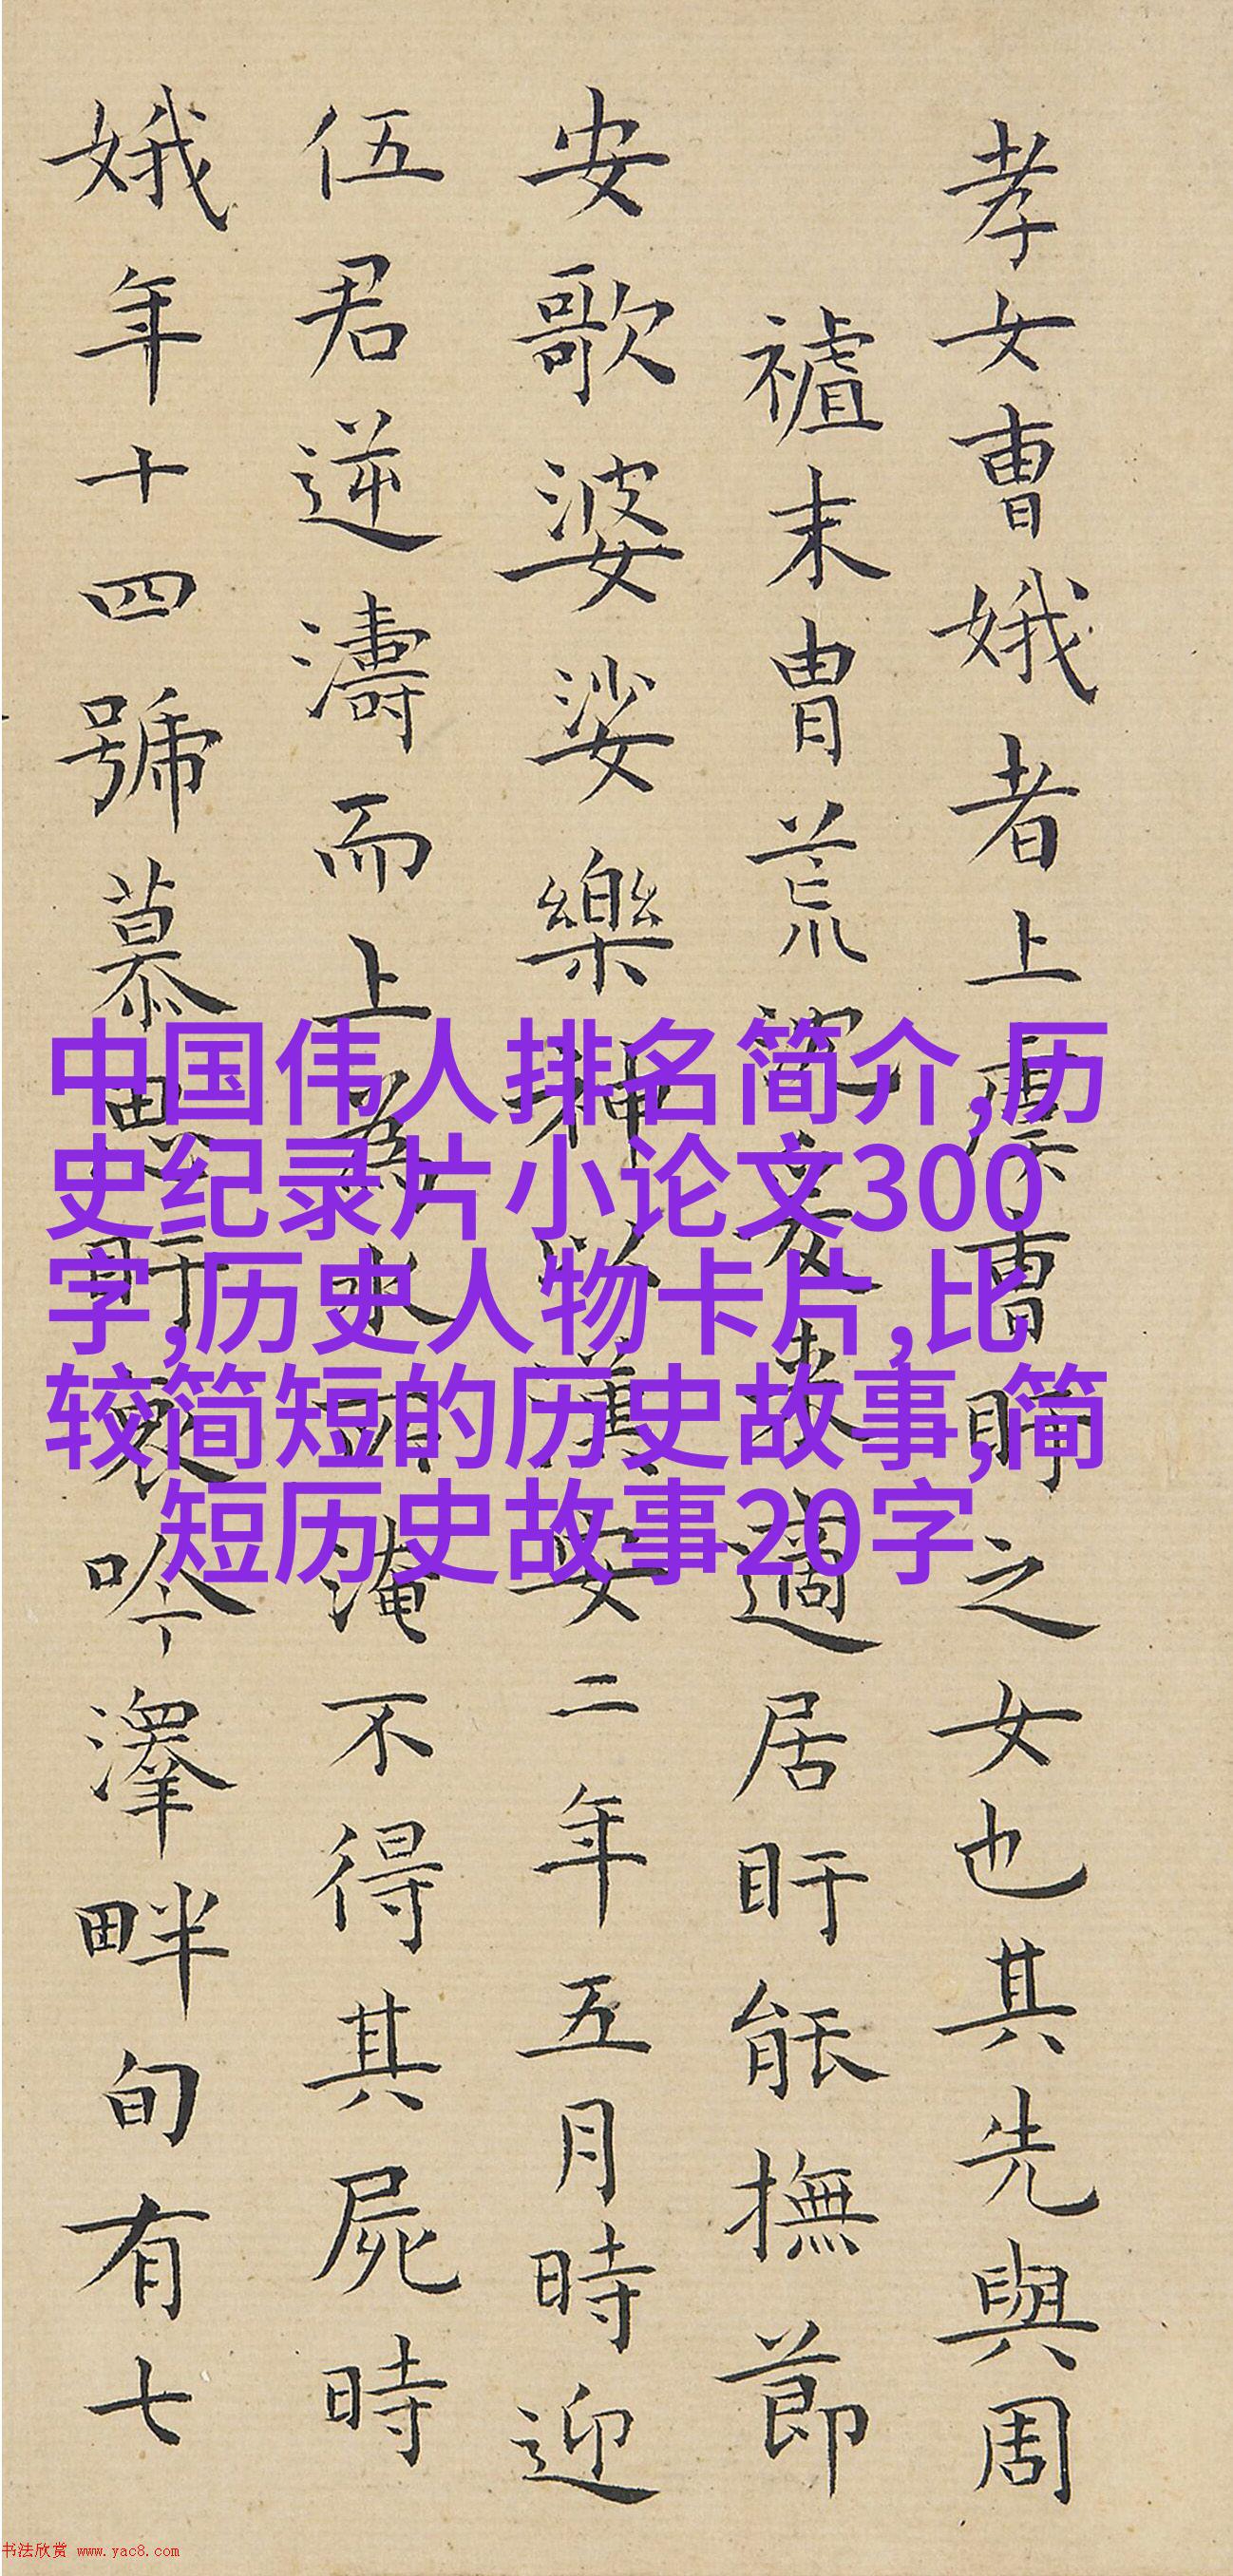 孝女曹娥者上虞曹盱之女也其先與周
末冑荒沈爰来適居盱能撫節
安歌婆娑樂神以漢安二年五月時迎
伍君逆濤而上為水所淹不得其屍時
娥年十四號慕思盱哀吟澤畔旬有七
中国伟人排名简介,历
史纪录片小论文300
字,历史人物卡片,比
较简短的历史故事,简
短历史故事20字
书法欣赏 www.yac8.com